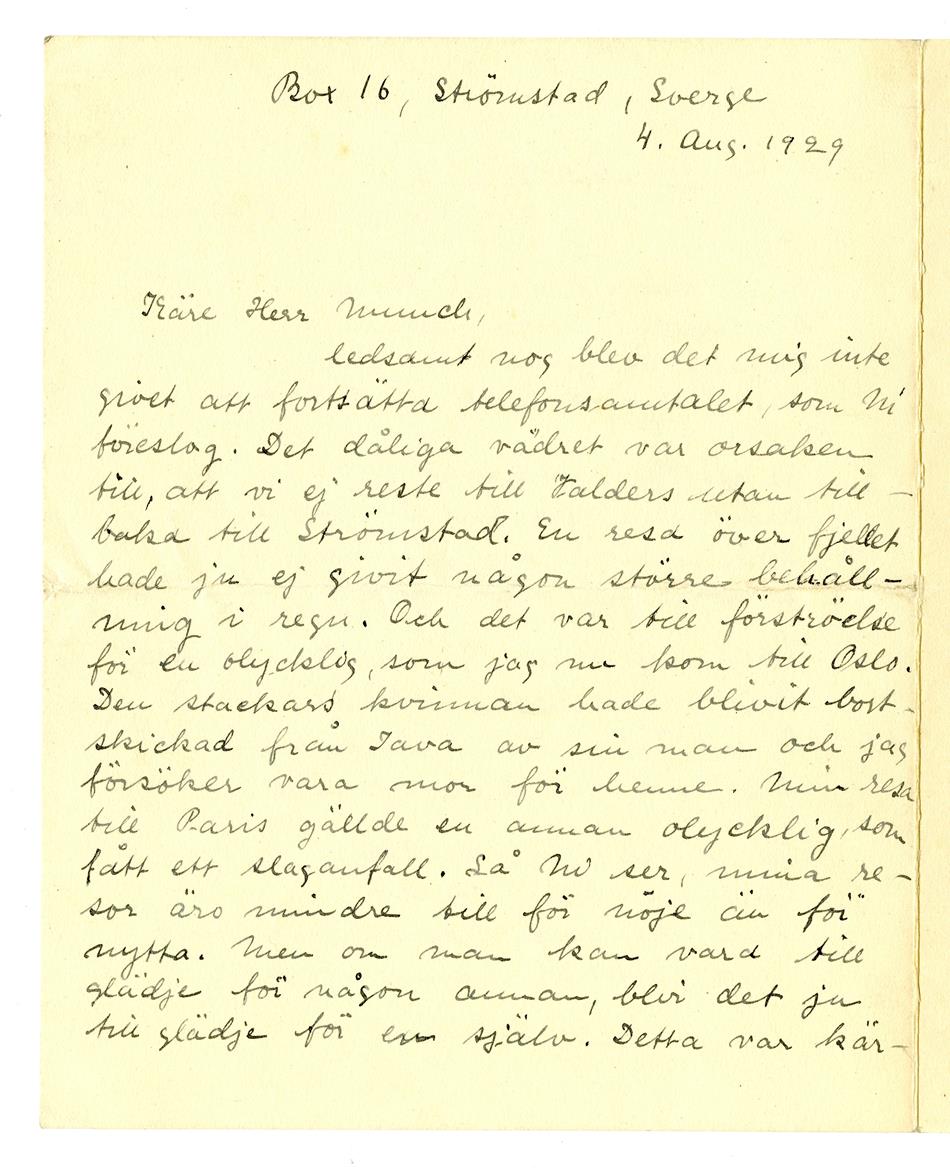 Box 16, Strömstad, Sverge
4. Aug. 1929
Käre Herr Munch,
ledsamt nog blev det mig inte
givet att fortsätta telefonsamtalet, som Ni
föreslog. Det dåliga vädret var orsaken
till, att vi ej reste till Valders utan till-
baka till Strömstad. En resa över fjellet
hade ju ej givit någon större behåll-
ning i regn. Och det var till förströelse
för en olycklig, som jag nu kom till Oslo.
Den stackars kvinnan hade blivit bort-
skickad från Java av sin man och jag
försöker vara mor för henne. Min resa
till Paris gällde en annan olycklig, som
fått ett slaganfall. Så Ni ser, mina re-
sor äro mindre till för nöje än för
nytta. Men om man kan vara till
glädje för någon annan, blir det ju
till glädje för en själv. Detta var kär-